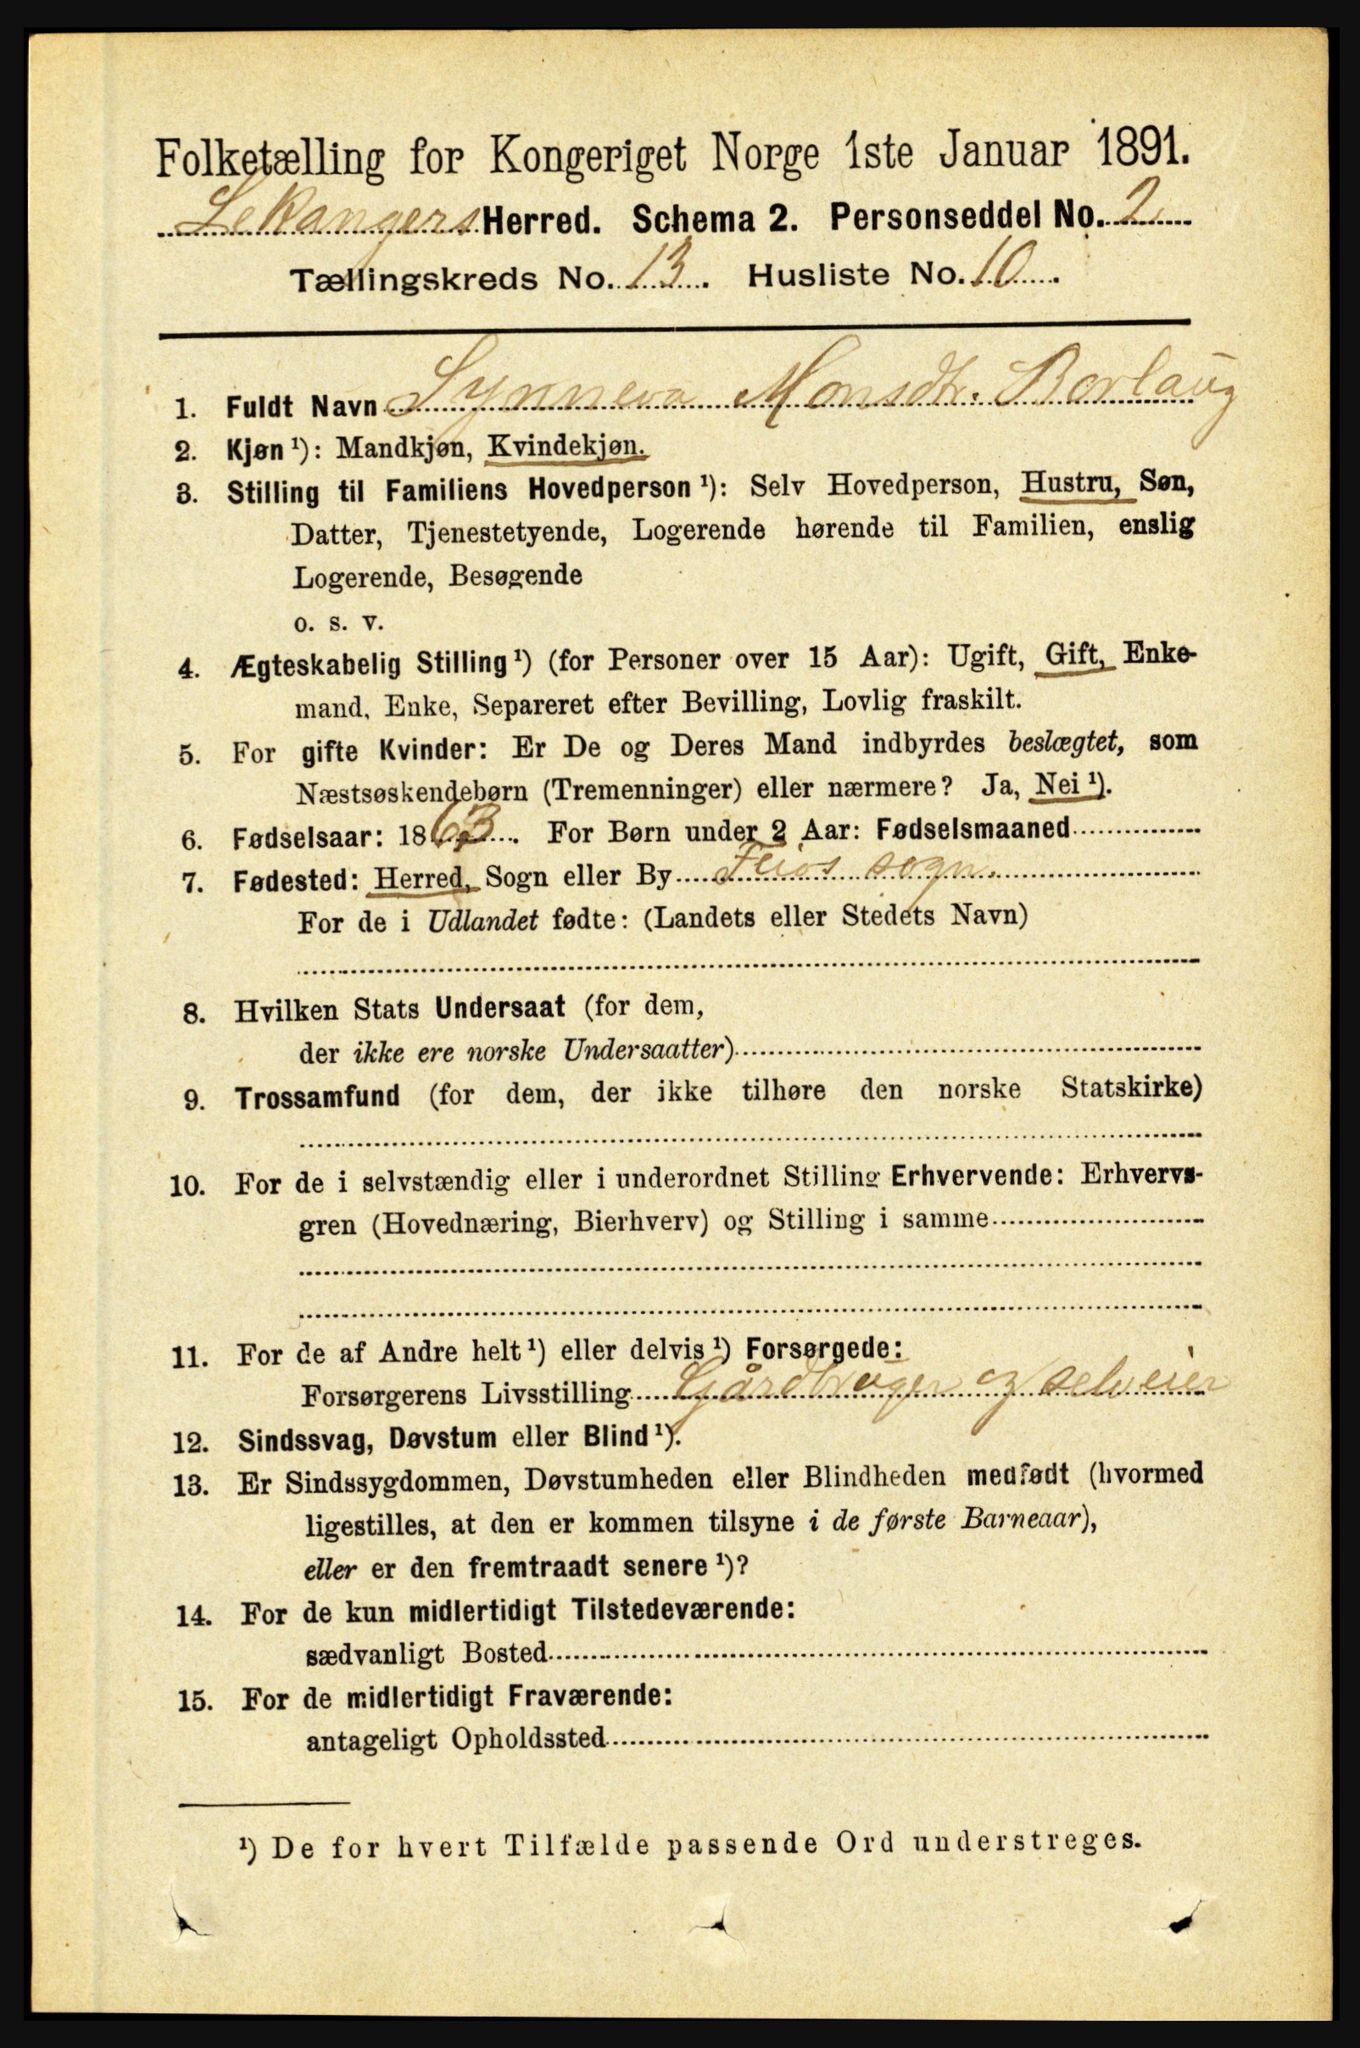 Folketælling for Kongeriget Norge 1ste Januar 1891.
Lekangers Herred. Schema 2. Personseddel No. 2
Tællingskreds No. 13. Husliste No. 10.
1. Fuldt Navn Synneva Monsdtr. Borlaug
2. Kjøn ¹): Mandkjøn, Kvindekjøn.
3. Stilling til Familiens Hovedperson ¹): Selv Hovedperson, Hustru, Søn,
Datter, Tjenestetyende, Logerende hørende til Familien, enslig
Logerende, Besøgende
o. s. v.
4. Ægteskabelig Stilling ¹) (for Personer over 15 Aar): Ugift, Gift, Enke-
mand, Enke, Separeret efter Bevilling, Lovlig fraskilt.
5. For gifte Kvinder: Er De og Deres Mand indbyrdes beslægtet, som
Næstsøskendebørn (Tremenninger) eller nærmere? Ja, Nei ¹).
6. Fødselsaar: 1863. For Børn under 2 Aar: Fødselsmaaned
7. Fødested: Herred, Sogn eller By Feios sogn.
For de i Udlandet fødte: (Landets eller Stedets Navn)
8. Hvilken Stats Undersaat (for dem,
der ikke ere norske Undersaatter)
9. Trossamfund (for dem, der ikke tilhøre den norske Statskirke)
10. For de i selvstændig eller i underordnet Stilling Erhvervende: Erhvervs-
gren (Hovednæring, Bierhverv) og Stilling i samme
11. For de af Andre helt ¹) eller delvis ¹) Forsørgede:
Forsørgerens Livsstilling Gårdbruger og selveier
12. Sindssvag, Døvstum eller Blind ¹).
13. Er Sindssygdommen, Døvstumheden eller Blindheden medfødt (hvormed
ligestilles, at den er kommen tilsyne i de første Barneaar),
eller er den fremtraadt senere ¹)?
14. For de kun midlertidigt Tilstedeværende:
sædvanligt Bosted
15. For de midlertidigt Fraværende:
antageligt Opholdssted
¹) De for hvert Tilfælde passende Ord understreges.